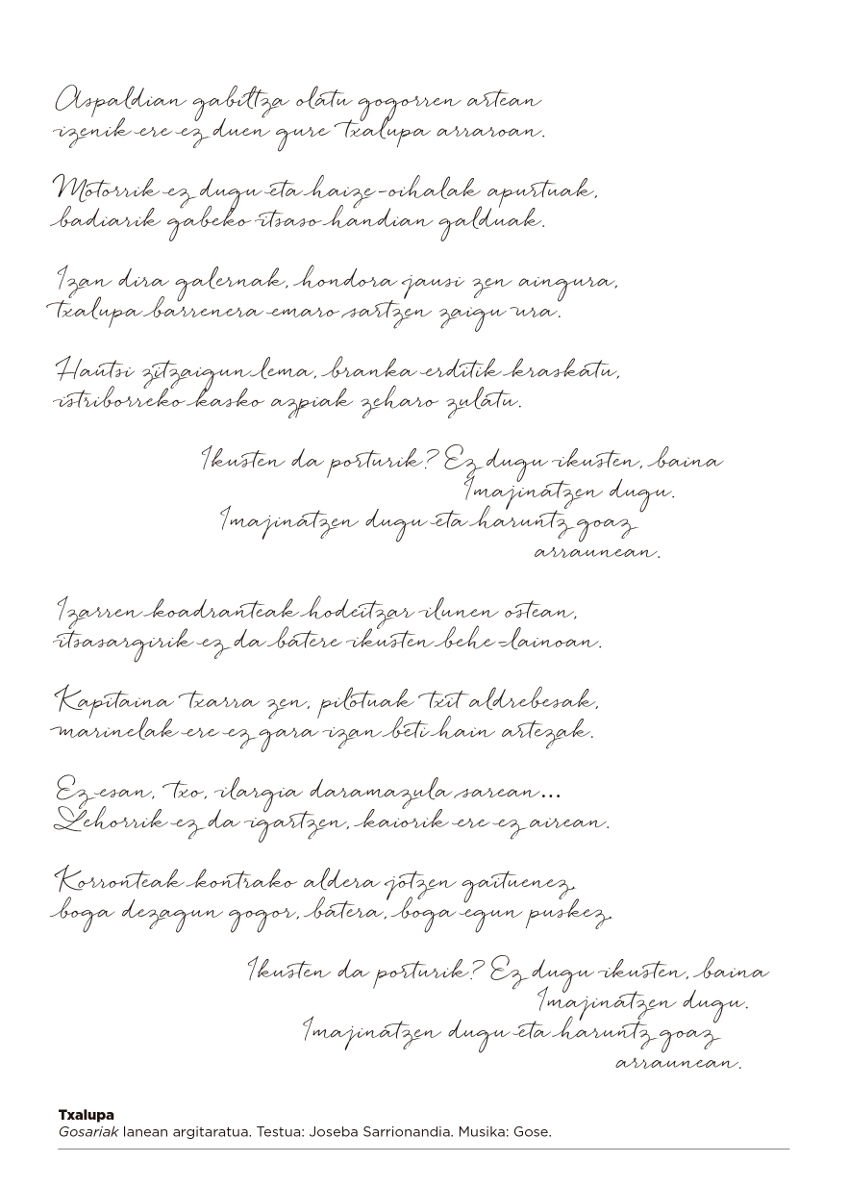 Aspaldian gabiltza olatu gogorren artean
izenik ere ez duen gure txalupa arraroan.
Motorrik ez dugu eta haize-oihalak apurtuak,
badiarik gabeko itsaso handian galduak.
Izan dira galernak, hondora jausi zen aingura,
txalupa barrenera emaro sartzen zaigu ura.
Hautsi zitzaigun lema, branka erditik kraskatu,
istriborreko kasko azpiak zeharo zulatu.
Ikusten da porturik? Ez dugu ikusten, baina
Imajinatzen dugu.
Imajinatzen dugu eta haruntz goaz
arraunean.
Izarren koadranteak hodeitzar ilunen ostean,
itsasargirik ez da batere ikusten behe-lainoan.
Kapitaina txarra zen, pilotuak txit aldrebesak,
marinelak ere ez gara izan beti hain artezak.
Ez esan, txo, ilargia daramazula sarean...
Lehorrik ez da igartzen, kaiorik ere ez airean.
Korronteak kontrako aldera jotzen gaituenez,
boga dezagun gogor, batera, boga egun puskez.
Ikusten da porturik? Ez dugu ikusten, baina
Imajinatzen dugu.
Imajinatzen dugu eta haruntz goaz
arraunean.
Txalupa
Gosariak lanean argitaratua. Testua: Joseba Sarrionandia. Musika: Gose.